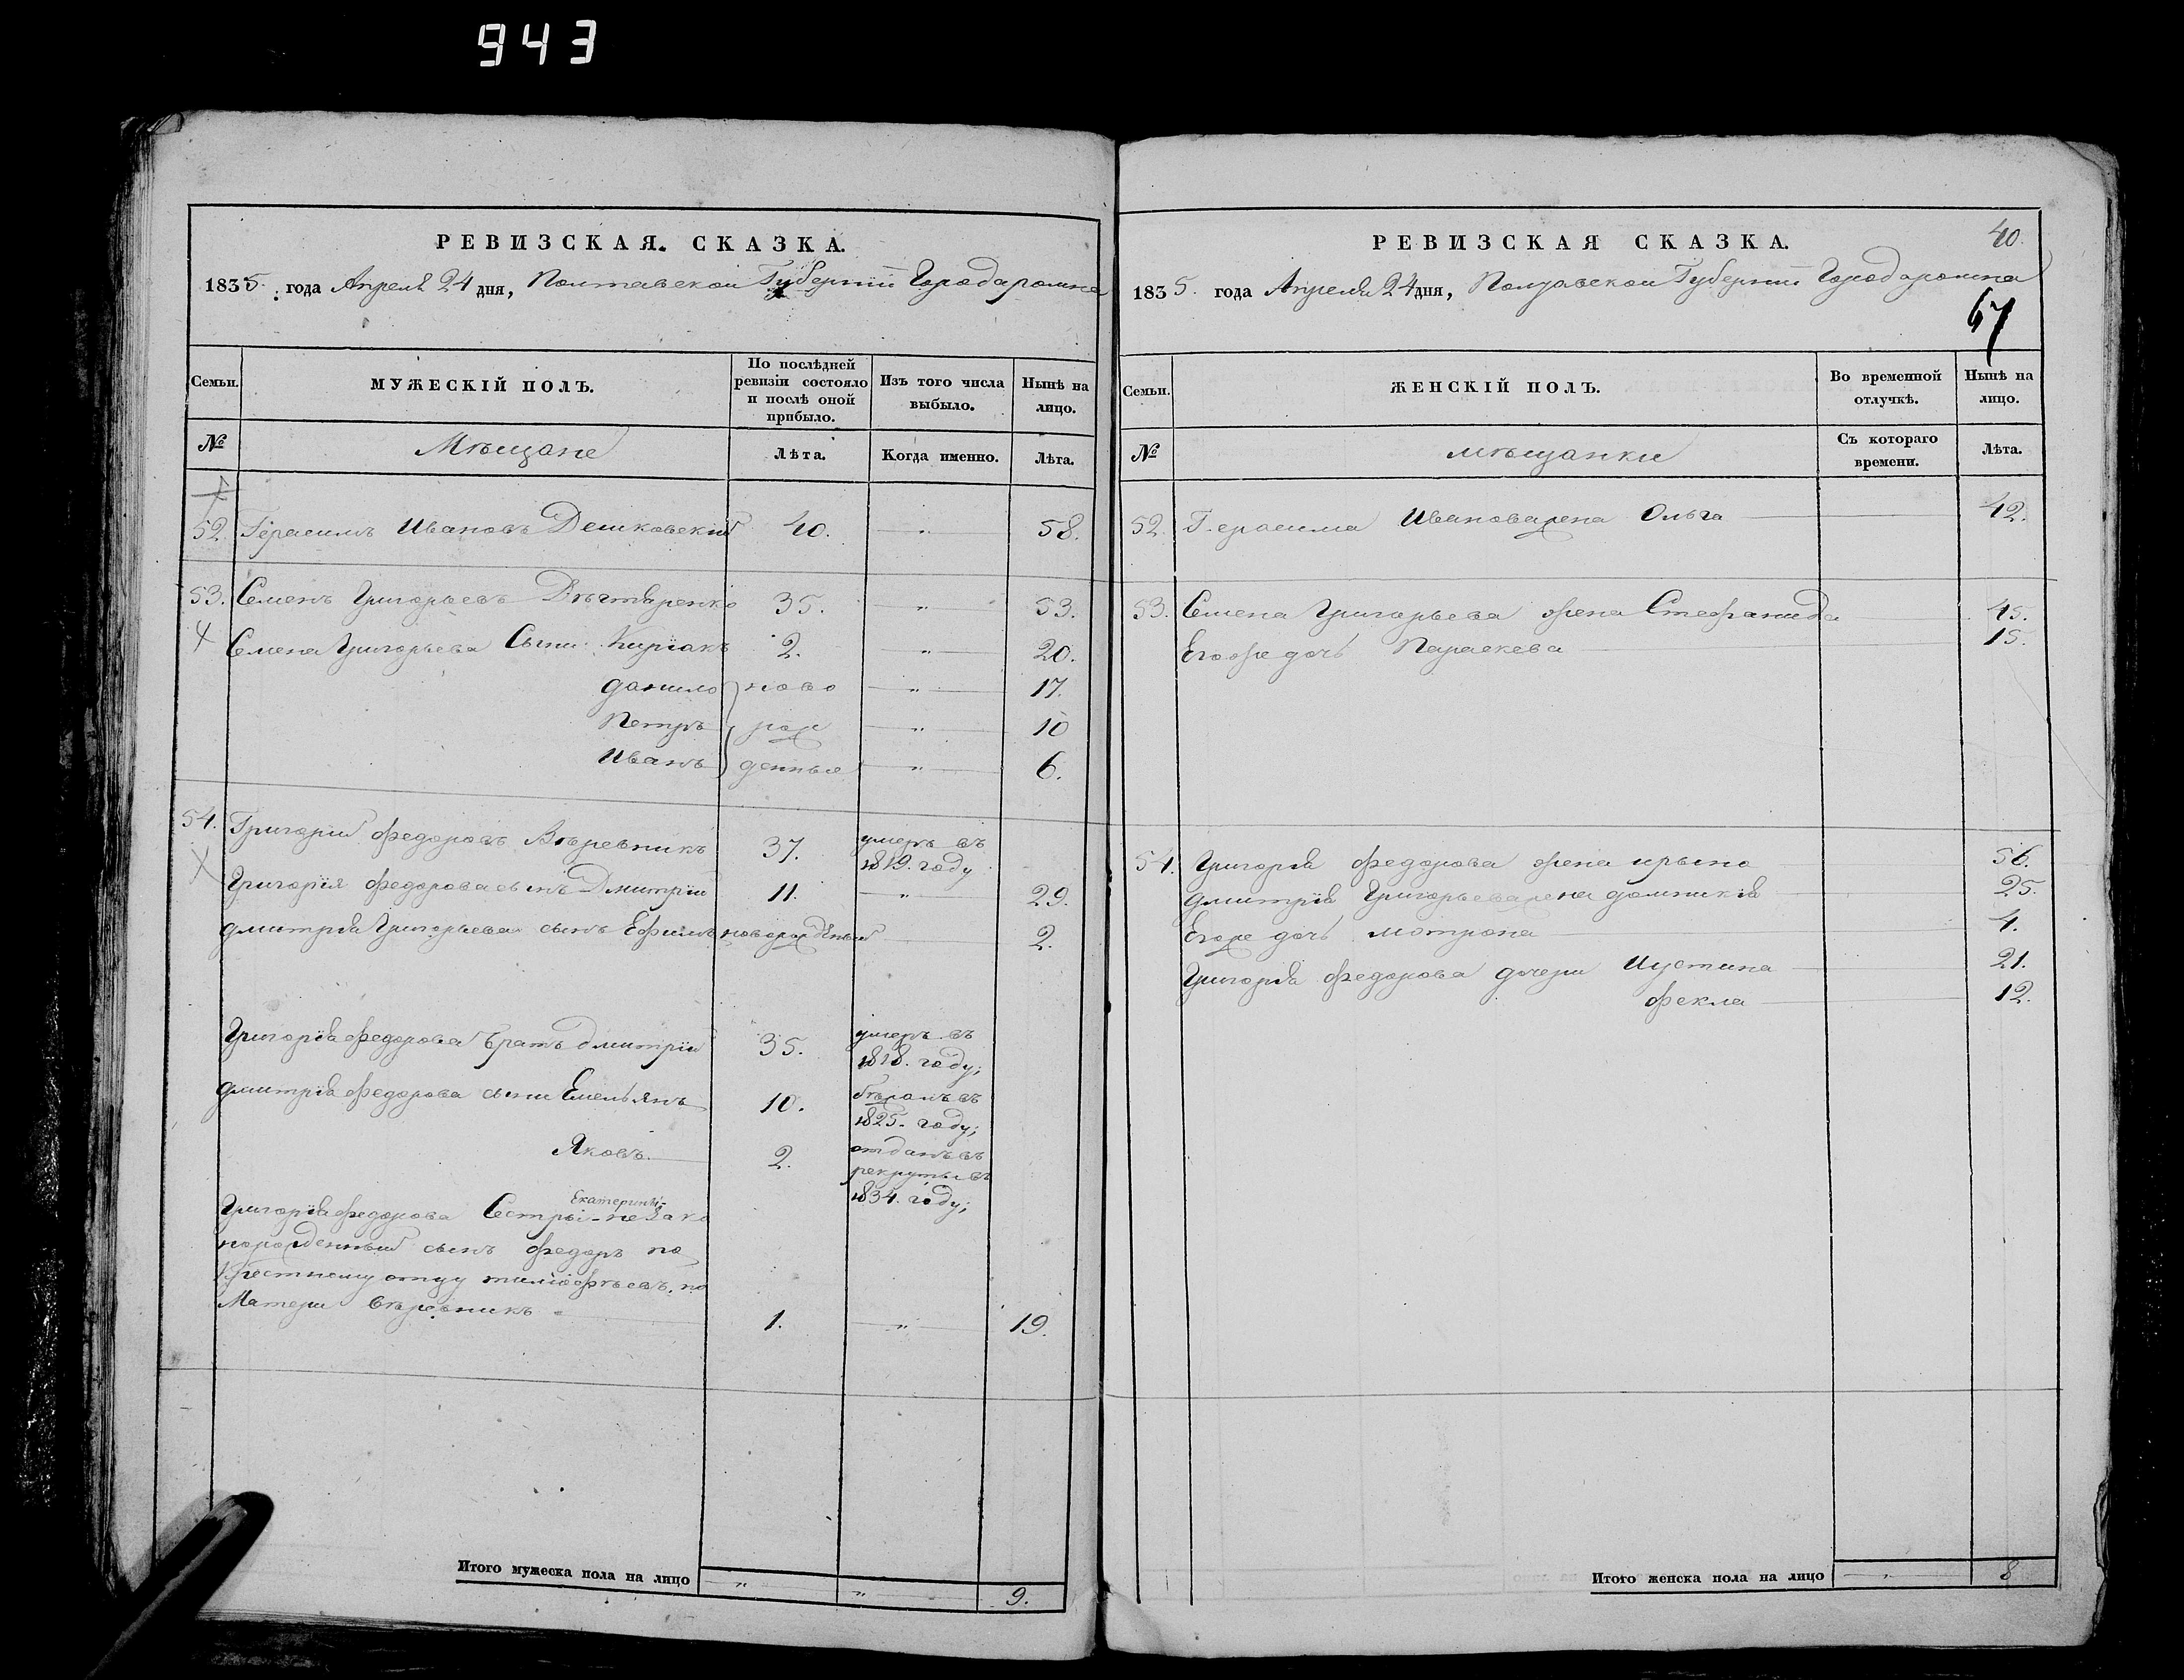 943
РЕВИЗСКАЯ. СКАЗКА.
1835. года Апреля 24 дня, Полтавской Губернїи Города ромна
Семьи.
МУЖЕСКІЙ ПОЛЪ.
По послѣдней ревизіи состояло и послѣ оной прибыло.
Изъ того числа выбыло.
Нынѣ на лицо.
№
Мѣщане
Лѣта.
Когда именно.
Лѣта.
52. Герасимъ Ивановъ Дешковский 40. „ 58.
53. Семенъ Григорьевъ Дѣгтяренко 35. „ 53.
Семена Григорьева Сыны Киріакъ 2. „ 20.
данило ново „ 17.
Петръ рож „ 10
Иванъ денные „ 6.
54. Григорий Федоровъ Вѣревникъ 37. умеръ въ 1819. году
Григорїя Федорова сынъ Дмитрїй 11. „ 29.
дмитрїя Григорьева сынъ Ефимъ новорожденный 2.
Григорїя Федорова братъ дмитрїй 35. умеръ въ 1818. году;
дмитрїя Федорова сыны Емельянъ 10. бѣжалъ въ 1825. году;
Яковъ. 2. отданъ въ рекруты въ 1834. году;
Екатерины
Григорїя Федорова Сестры незако
норожденный сынъ Федоръ по
крестному отцу тимофѣевъ, по
Матери Вѣревникъ 1. „ 19.
Итого мужеска пола на лицо „ „ 9.
40.
РЕВИЗСКАЯ СКАЗКА.
1835. года Апреля 24 дня, Полтавской Губернїи Города ромна
67
Семьи.
ЖЕНСКІЙ ПОЛЪ.
Во временной отлучкѣ.
Нынѣ на лицо.
№
мѣщанки
Съ котораго времени.
Лѣта.
52. Герасима Иванова жена Ольга 42.
53. Семена Григорьева жена Стефанида 45.
Егоже дочь Параскева 15.
54. Григорїя Федорова жена ирына 56.
дмитрїя Григорьева жена домникїя 25.
Егоже дочь мотрона 4.
Григорїя Федорова дочери Иустина 21.
Фекла 12.
Итого женска пола на лицо „ 8